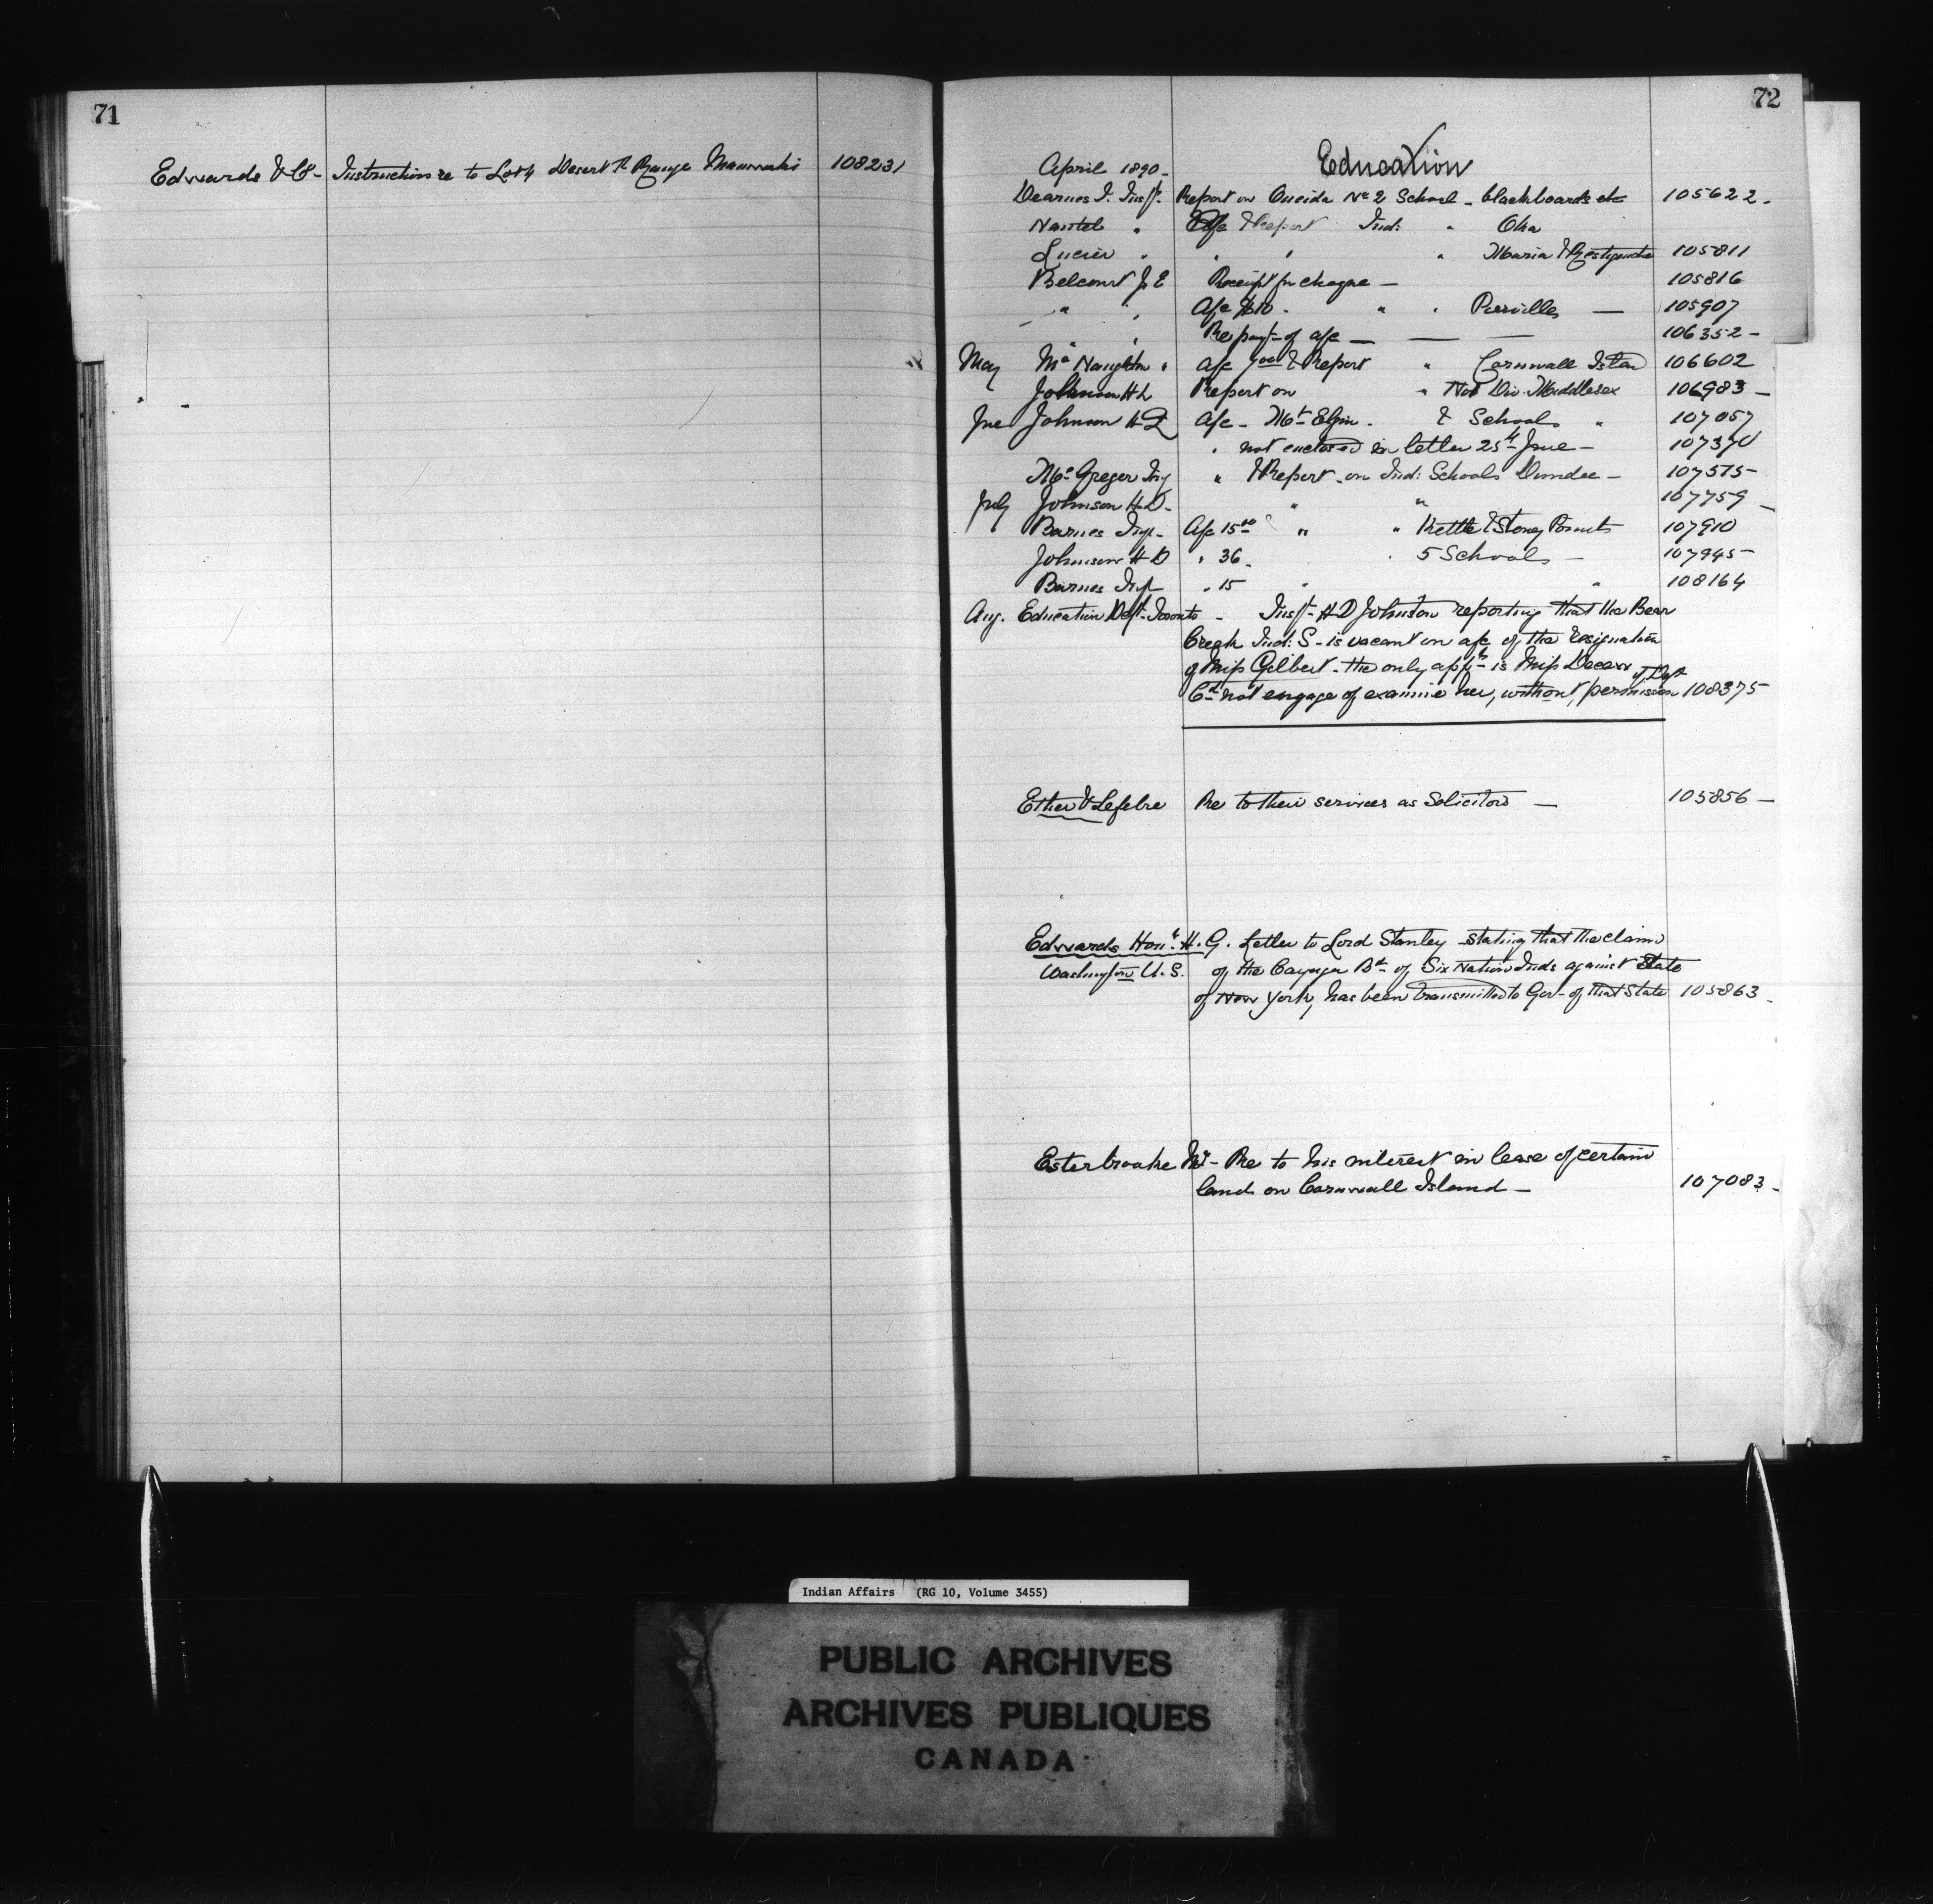 71
Edwards & Co - Instruction re to Lot 4 Desert R Range Maniwaki 108231
72
Education
April 1890 -
Dearnes J. Insp. Report on Oneida No 2 School - blackboards etc 105622 -
Nantel " a/c & Report Ind: " Oka
Lucier " " " " Maria & Restigouche 105811
Belcourt J E Receipt for cheque - 105816
" " a/c " " Pierville - 105907
" Re payt of a/c - 106352 -
May Mc Naughton " a/c & Report " Cornwall Islan 106602
Johnson H D Report on " No 1 Div. Middlesex 106983 -
June Johnson H D a/c - Mt Elgin - & Schools " 107057
" not enclosed in letter 25th June - 107370
Mc Gregor Insp " & Report - on Ind: Schools Dundee - 107575
July Johnson H.D. " " 107759 -
Barnes Insp - a/c 15.00 " " Kettle & Stoney Points 107910
Johnson H D " 36 - " 5 Schools - 107945
Barnes Insp " 15 " " 108164
Aug. Education Dept. Toronto - Inspt H D Johnston reporting that the Bear
Creek Ind: S - is vacant on a/c of the resignation
of Miss Gilbert - the only appt is Miss
Cd not engage or examine her, without permission of Dept 108375
Ethier & Lefebre Re to their services as Solicitors - 105856 -
Edwards Honl. H. G. Letter to Lord Stanley stating that the claim
Washington U.S. of the Cayuga Bd of Six Nation Inds against State
of New York, has been transmitted to Gov - of that State 105863 -
Esterbrooke Mr - Re to his interest in lease of certain
land on Cornwall Island - 107083 -
Indian Affairs (RG 10, Volume 3455)
PUBLIC ARCHIVES
ARCHIVES PUBLIQUES
CANADA